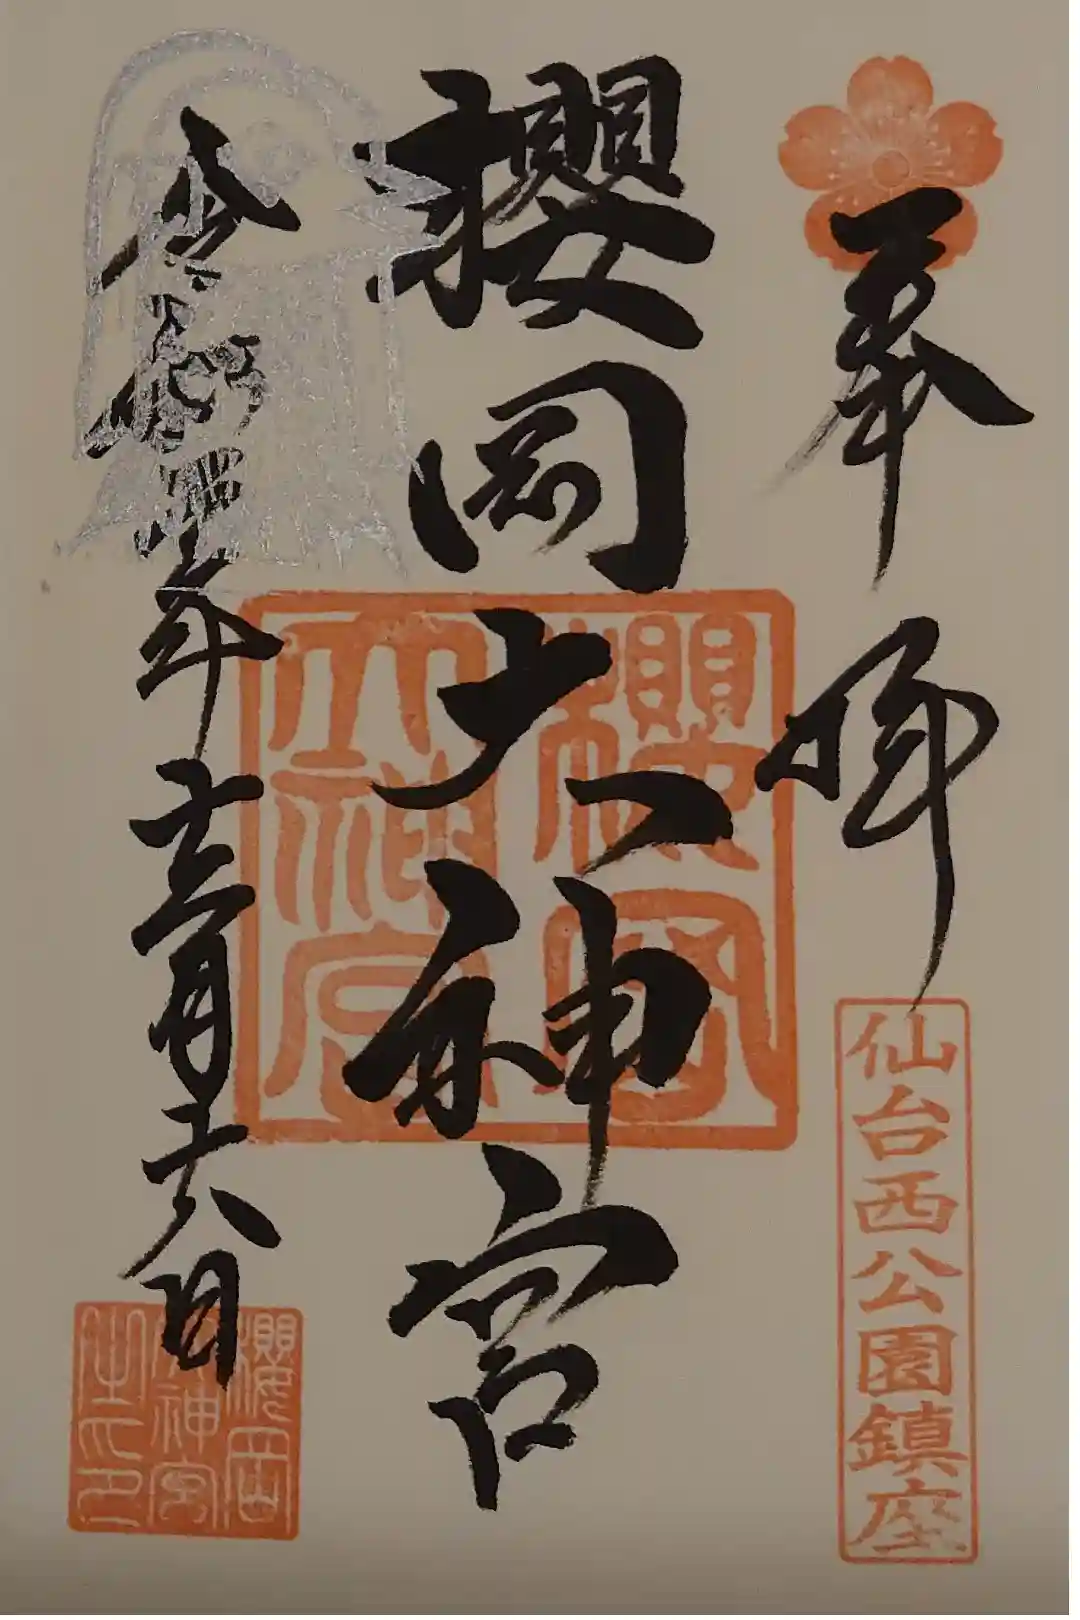 奉拝
仙台西公園鎮座
櫻岡大神宮
櫻岡
大神宮
令和四年十二月十六日
櫻岡
大神宮
之印